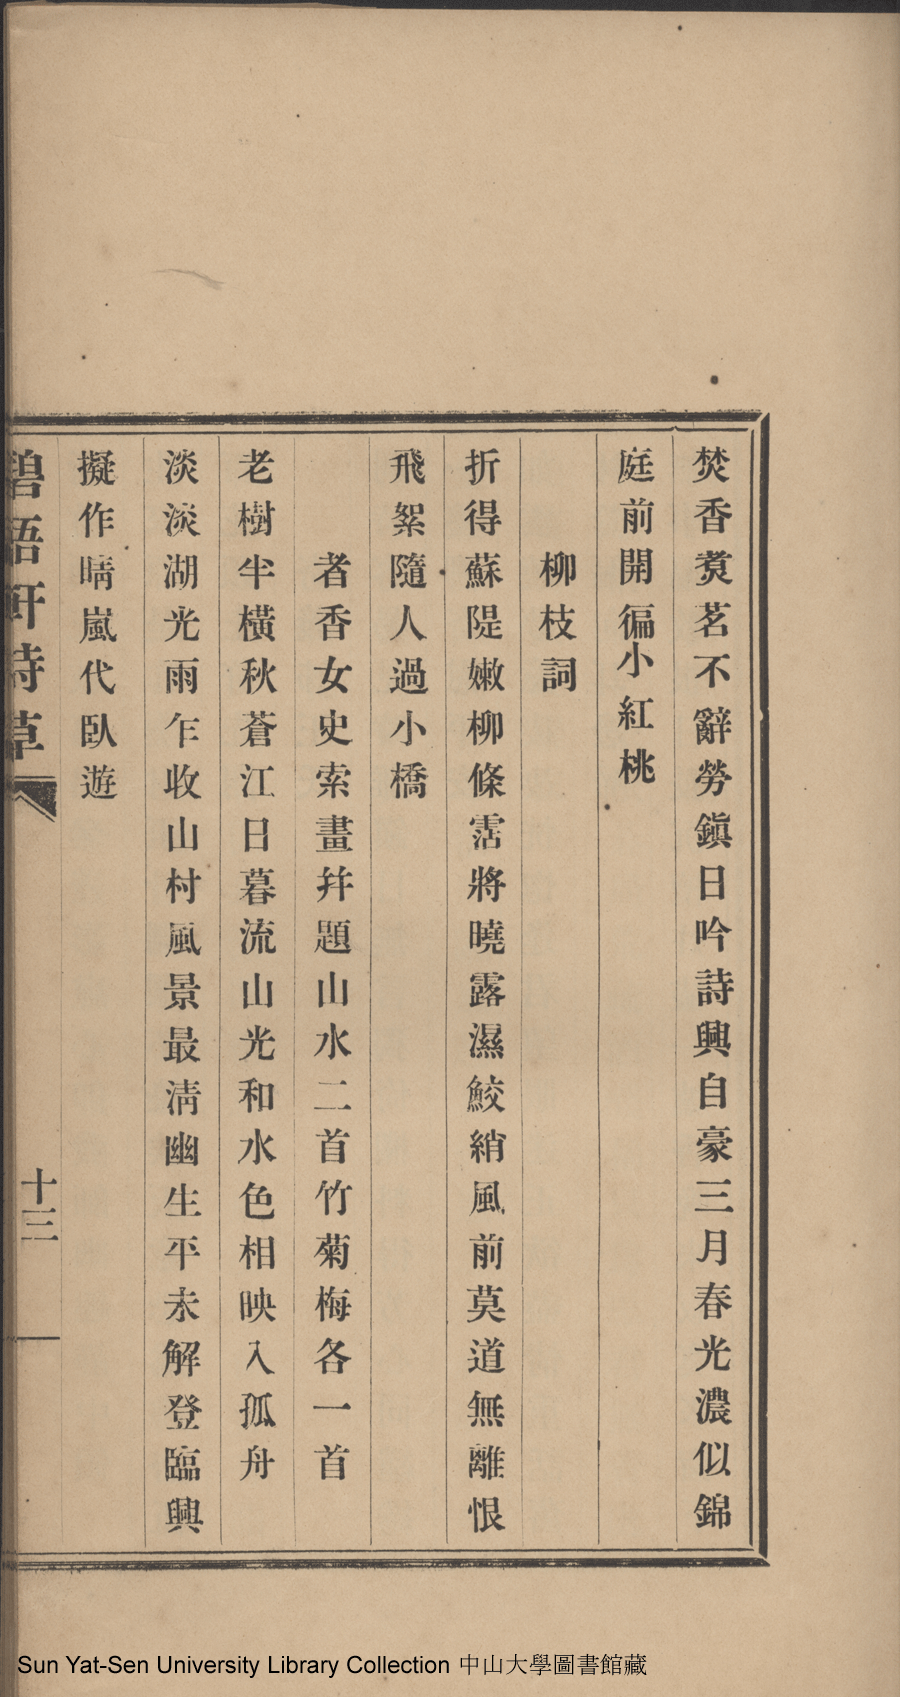 焚香煑茗不辭勞鎮日吟詩興自豪三月春光濃似錦
庭前開徧小紅桃
柳枝詞
折得蘇隄嫩柳條霑將曉露濕鮫綃風前莫道無離恨
飛絮隨人過小橋
者香女史索畫幷題山水二首竹菊梅各一首
老樹半橫秋蒼江日暮流山光和水色相映入孤舟
淡淡湖光雨乍收山村風景最淸幽生平未解登臨興
擬作晴嵐代臥遊
碧梧軒詩草
十三
Sun Yat-Sen University Library Collection 中山大學圖書館藏